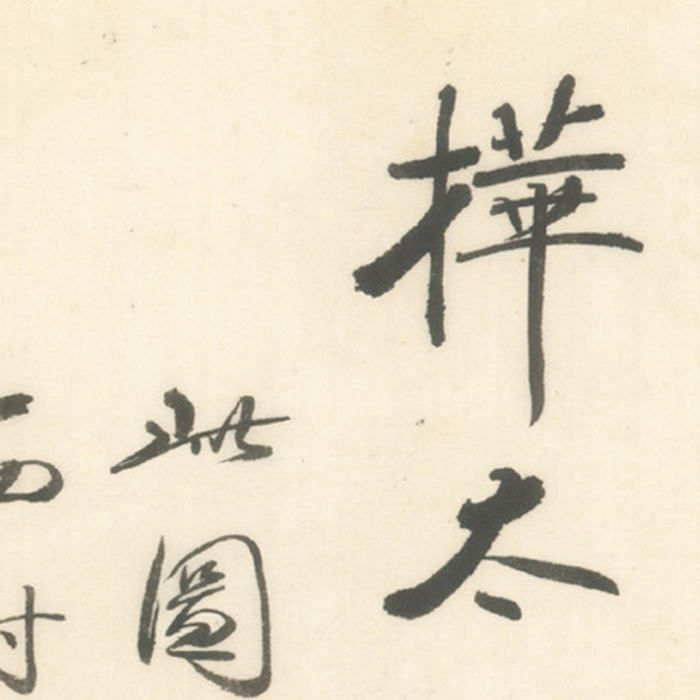 樺太
此圖